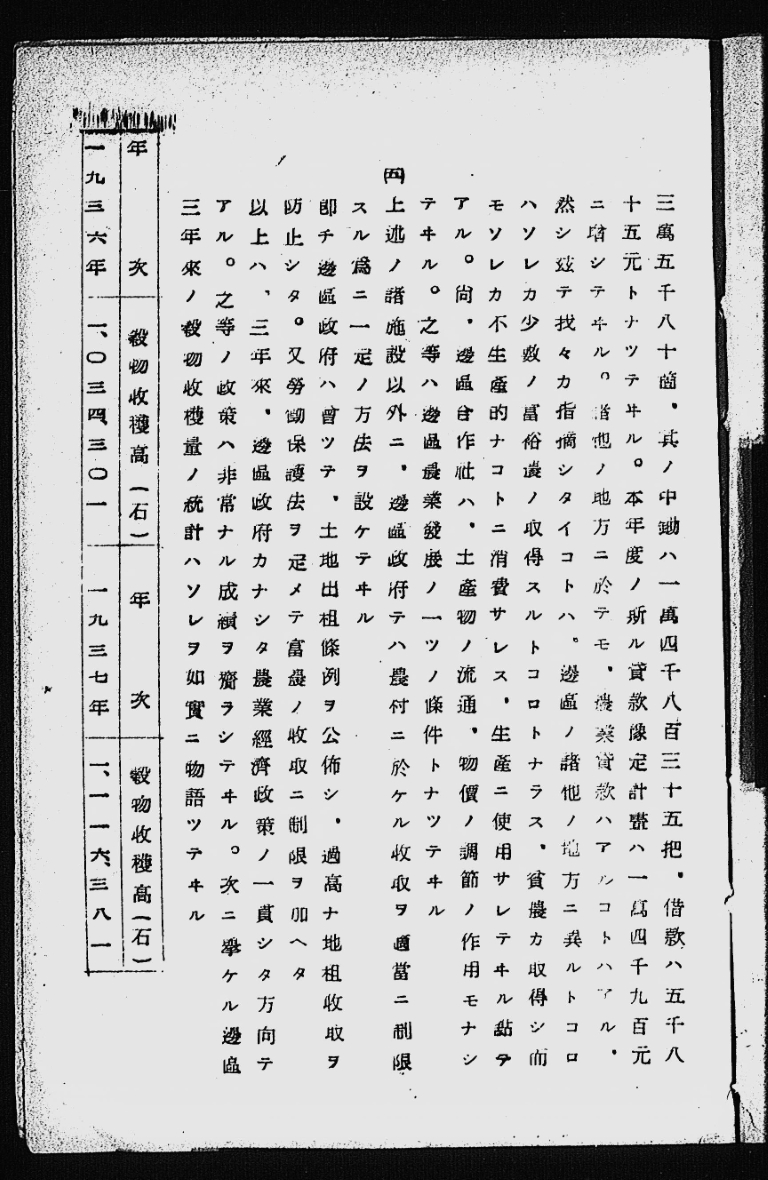 三萬五千八十箇、其ノ中鋤ハ一萬四千八百三十五把、借款ハ五千八
十五元トナツテヰル。本年度ノ斯ル貸款豫定計畫ハ一萬四千九百元
ニ増シテヰル。諸他ノ地方ニ於テモ、農業貸款ハアルコトハアル、
然シ茲テ我々カ指摘シタイコトハ。邊區ノ諸他ノ地方ニ異ルトコロ
ハソレカ少數ノ富裕農ノ取得スルトコロトナラス、貧農カ取得シ而
モソレカ不生産的ナコトニ消費サレス、生産ニ使用サレテヰル點テ
アル。尚、邊區合作社ハ、土産物ノ流通、物價ノ調節ノ作用モナシ
テヰル。之等ハ邊區農業發展ノ一ツノ條件トナツテヰル
㈣上述ノ諸施設以外ニ、邊區政府テハ農村ニ於ケル收取ヲ適當ニ制限
スル爲ニ一定ノ方法ヲ設ケテヰル
即チ邊區政府ハ曾ツテ、土地出租條例ヲ公佈シ、過高ナ地租收取ヲ
防止シタ。又勞働保護法ヲ定メテ富農ノ收取ニ制限ヲ加ヘタ
以上ハ、三年來、邊區政府カナシタ農業經濟政策ノ一貫シタ方向テ
アル。之等ノ政策ハ非常ナル成績ヲ齎ラシテヰル。次ニ擧ケル邊區
三年來ノ穀物收穫量ノ統計ハソレヲ如實ニ物語ツテヰル
年次 穀物收穫高(石) 年次 穀物收穫高(石)
一九三六年 一、〇三四、三〇一 一九三七年 一、一一六、三八一